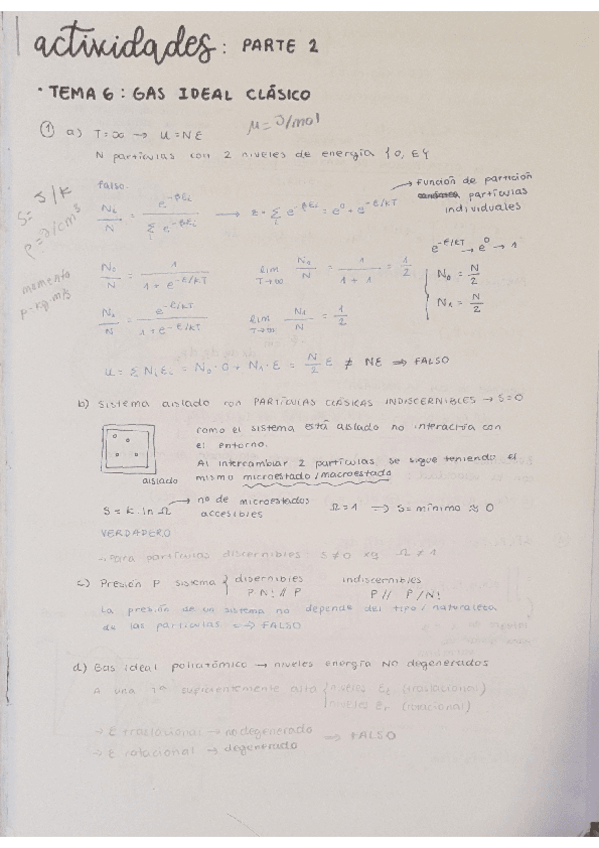 actividades: PARTE 2
· TEMA 6: GAS IDEAL CLÁSICO
μ = J/mol
① a) T = ∞ → U = NE
N partículas con 2 niveles de energía {0, E}
falso.
S = J/K
ρ = g/cm³
momento
p = kg·m/s
Ni/N = e^-βEi / Σi e^-βEi → z = Σi e^-βEi = e⁰ + e^-E/kT
Función de partición
partículas
individuales
e^-E/kT → e⁰ → 1
N₀/N = 1 / 1 + e^-E/kT    lim T→∞ N₀/N = 1 / 1 + 1 = 1/2    N₀ = N/2
N₁/N = e^-E/kT / 1 + e^-E/kT    lim T→∞ N₁/N = 1/2    N₁ = N/2
U = Σ NiEi = N₀·0 + N₁·E = N/2 E ≠ NE ⟹ FALSO
b) Sistema aislado con PARTÍCULAS CLÁSICAS INDISCERNIBLES → S=0
como el sistema está aislado no interactúa con
el entorno.
Al intercambiar 2 partículas se sigue teniendo el
mismo microestado/macroestado
aislado
S = k ln Ω → nº de microestados
accesibles    Ω = 1 ⟹ S = mínimo ≈ 0
VERDADERO
→ Para partículas discernibles: S≠0 xq Ω ≠ 1
c) Presión P sistema { disernibles    indiscernibles
P N! // P    P // P/N!
La presión de un sistema no depende del tipo/naturaleza
de las partículas ⟹ FALSO
d) Gas ideal poliatómico → niveles energía NO degenerados
A una Tª suficientemente alta { niveles Et (traslacional)
niveles Er (rotacional)
→ E traslacional → no degenerado
→ E rotacional → degenerado
⟹ FALSO